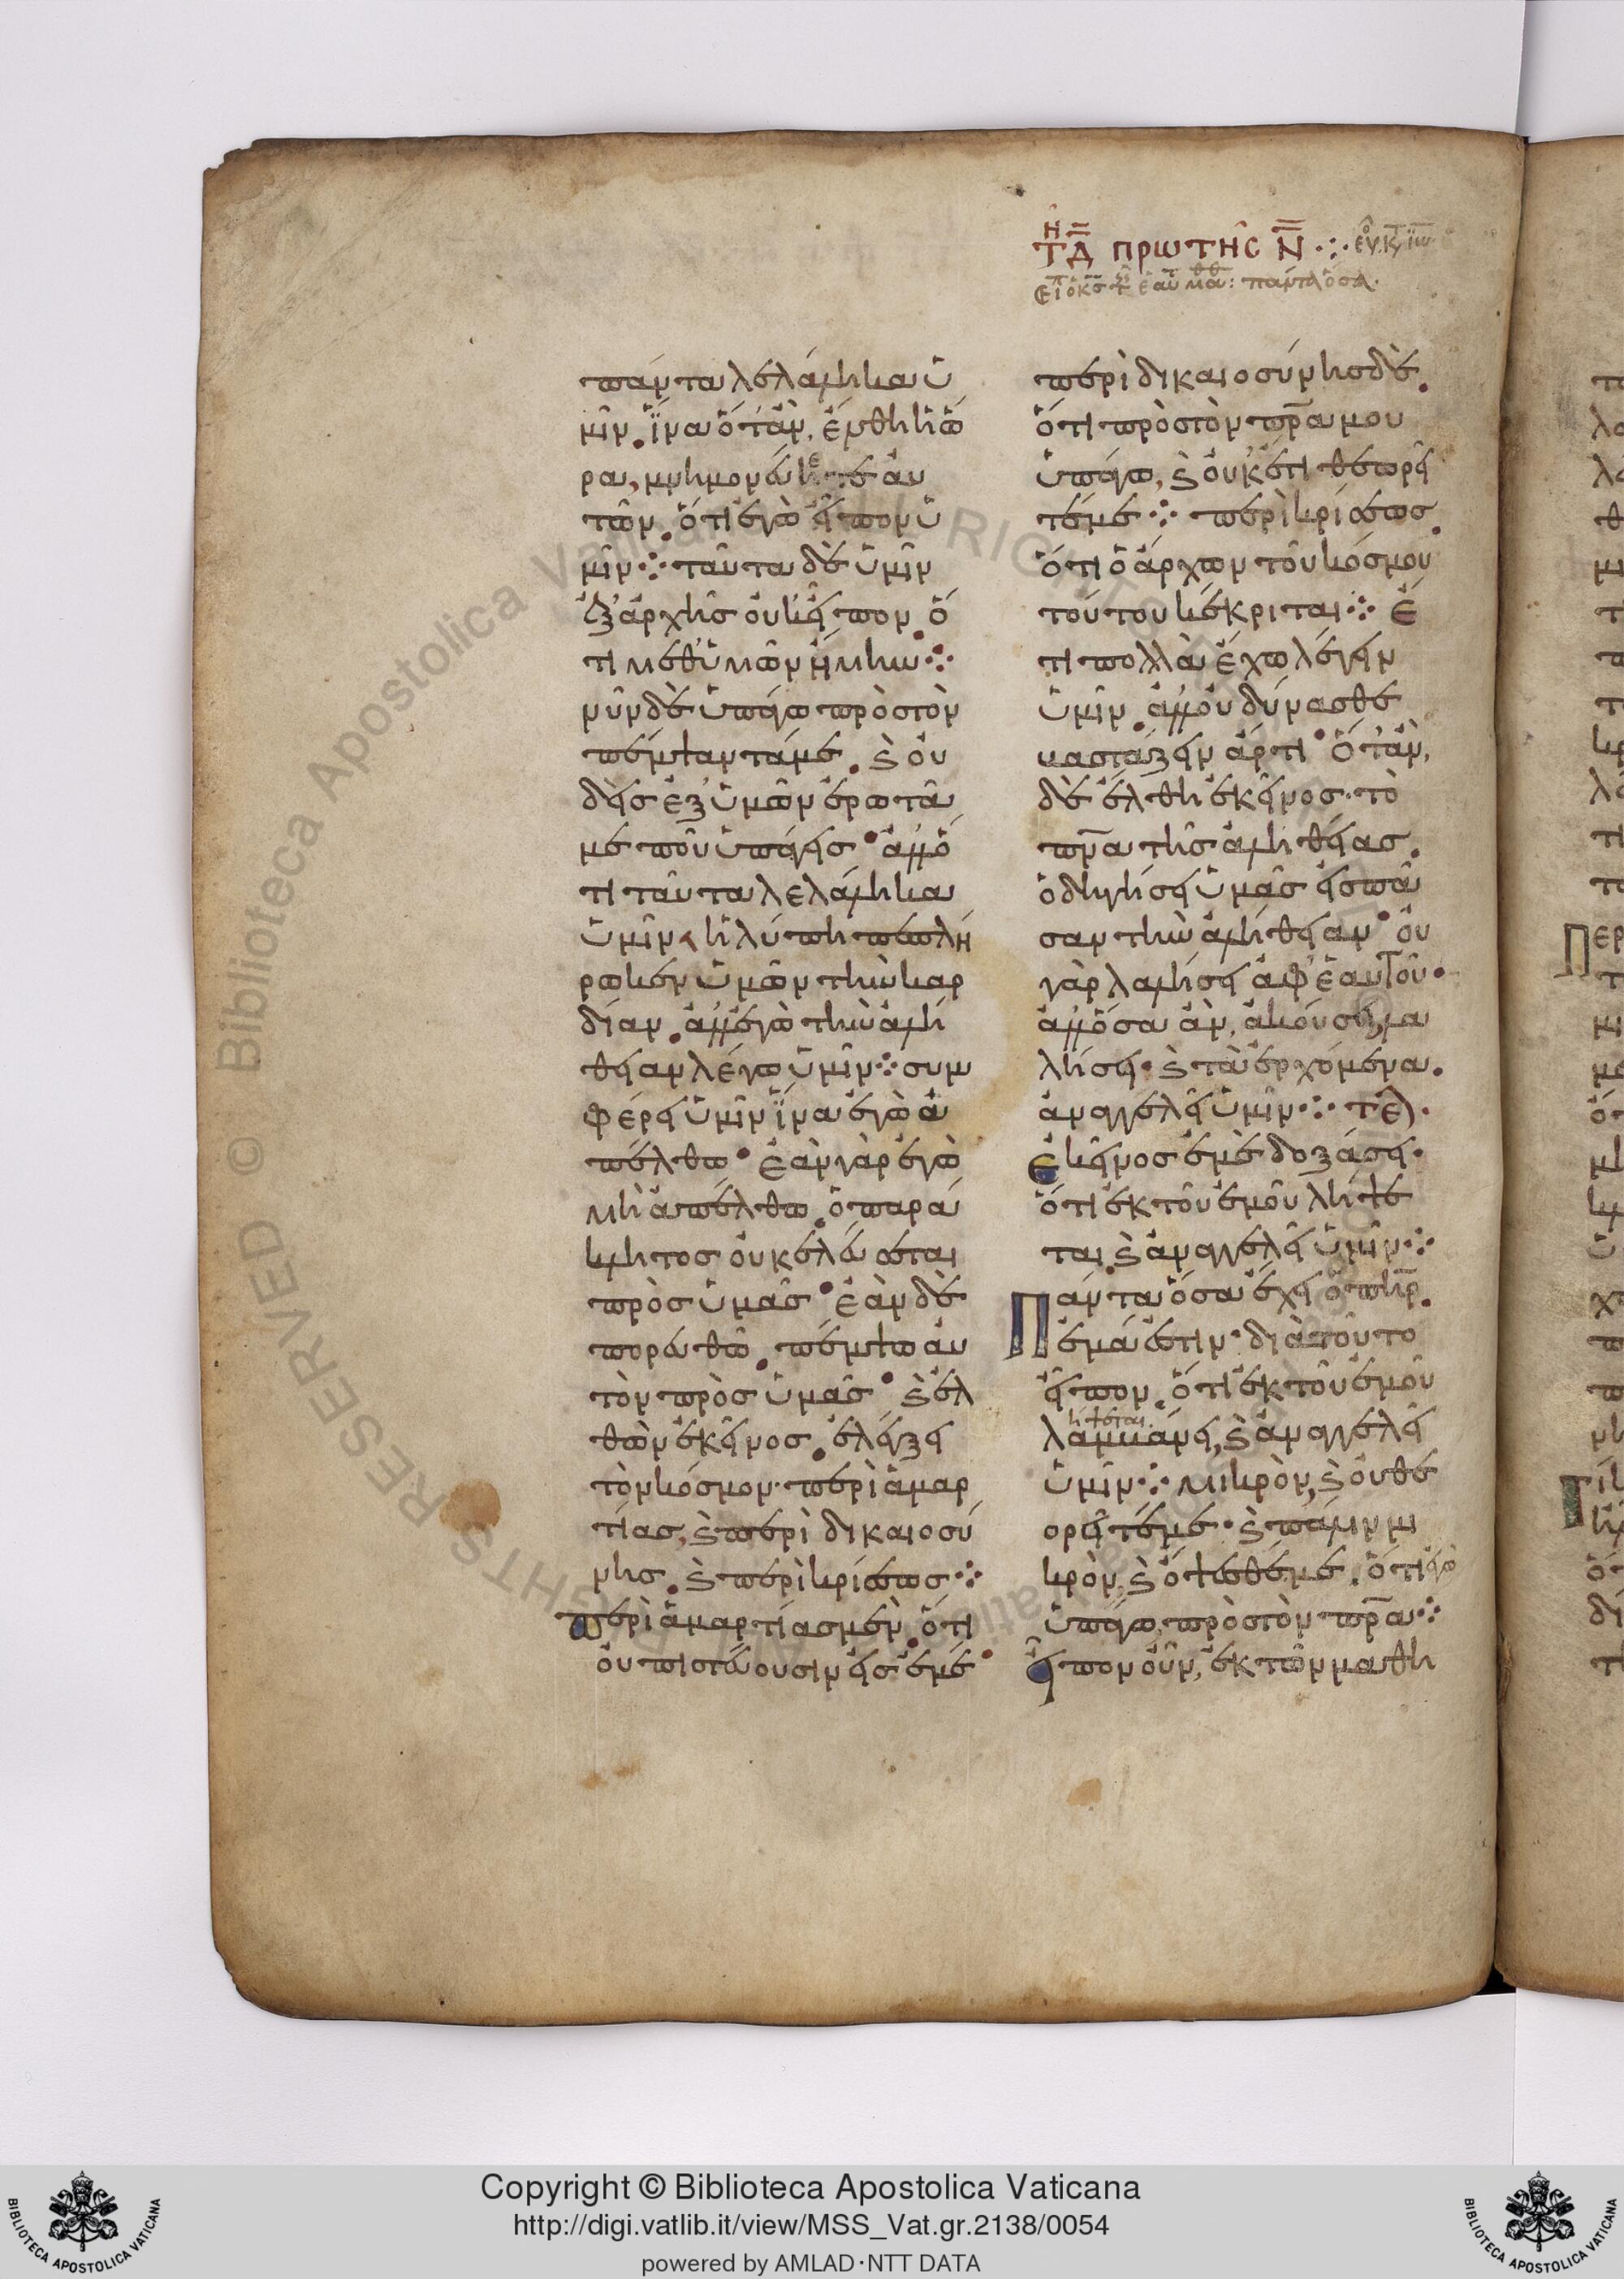 τῇ Δ̅ πρώτης Ν̅ ·:·
πάντα λελάληκα ὑ
μῖν. ἵνα ὅταν, ἔλθη ἡ ὥ
ρα, μνημονεύητε αὐ
τῶν. ὅτι ἐγὼ εἶπον ὑ
μῖν ·:· ταῦτα δὲ ὑμῖν
ἐξ ἀρχῆς οὐκ εἶπον. ὅ
τι μεθ' ὑμῶν ἤμην ·:·
νῦν δὲ ὑπάγω πρὸς τὸν
πέμψαντά με. καὶ οὐ
δεὶς ἐξ ὑμῶν ἐρωτᾶ
με ποῦ ὑπάγεις· ἀλλ' ὅ
τι ταῦτα λελάληκα
ὑμῖν, ἡ λύπη πεπλή
ρωκεν ὑμῶν τὴν καρ
δίαν. ἀλλ' ἐγὼ τὴν ἀλή
θειαν λέγω ὑμῖν ·:· συμ
φέρει ὑμῖν ἵνα ἐγὼ ἀ
πέλθω· ἐὰν γὰρ ἐγὼ
μὴ ἀπέλθω. ὁ παρά
κλητος οὐκ ἐλεύσεται
πρὸς ὑμᾶς· ἐὰν δὲ
πορευθῶ. πέμψω αὐ
τὸν πρὸς ὑμᾶς· καὶ ἐλ
θὼν ἐκεῖνος. ἐλέγξει
τὸν κόσμον· περὶ ἁμαρ
τίας, καὶ περὶ δικαιοσύ
νης. καὶ περὶ κρίσεως ·:·
περὶ ἁμαρτίας μὲν. ὅτι
οὐ πιστεύουσιν εἰς ἐμέ·
περὶ δικαιοσύνης δὲ.
ὅτι πρὸς τὸν πρ̅α μου
ὑπάγω, καὶ οὐκ ἔτι θεωρεῖ
τέ με ·:· περὶ κρίσεως.
ὅτι ὁ ἄρχων τοῦ κόσμου
τούτου κέκριται ·:· ἔ
τι πολλὰ ἔχω λέγειν
ὑμῖν. ἀλλ' οὐ δύνασθε
βαστάζειν ἄρτι· ὅταν,
δὲ ἔλθη ἐκεῖνος· τὸ
πν̅α τῆς ἀληθείας.
ὁδηγήσει ὑμᾶς εἰς πᾶ
σαν τὴν ἀλήθειαν· οὐ
γὰρ λαλήσει ἀφ' ἑαυτοῦ·
ἀλλ' ὅσα ἂν, ἀκούσῃ, λα
λήσει· καὶ τὰ ἐρχόμενα.
ἀναγγελεῖ ὑμῖν ·:· τέλ.
ἐκεῖνος ἐμὲ δοξάσει·
ὅτι ἐκ τοῦ ἐμοῦ λήψε
ται. καὶ ἀναγγελεῖ ὑμῖν ·:·
Πάντα ὅσα ἔχει ὁ π̅η̅ρ.
ἐμά ἐστιν· διὰ τοῦτο
εἶπον. ὅτι ἐκ τοῦ ἐμοῦ
ήψεται
λαμβάνει, καὶ ἀναγγελεῖ
ὑμῖν ·:· μικρὸν, καὶ οὐ θε
ωρεῖτέ με· καὶ πάλιν μι
κρὸν, καὶ ὄψεσθέ με, ὅτι ἐγὼ
ὑπάγω πρὸς τὸν πρ̅α ·:·
εἶπον οὖν, ἐκ τῶν μαθη
Copyright © Biblioteca Apostolica Vaticana
http://digi.vatlib.it/view/MSS_Vat.gr.2138/0054
powered by AMLAD·NTT DATA